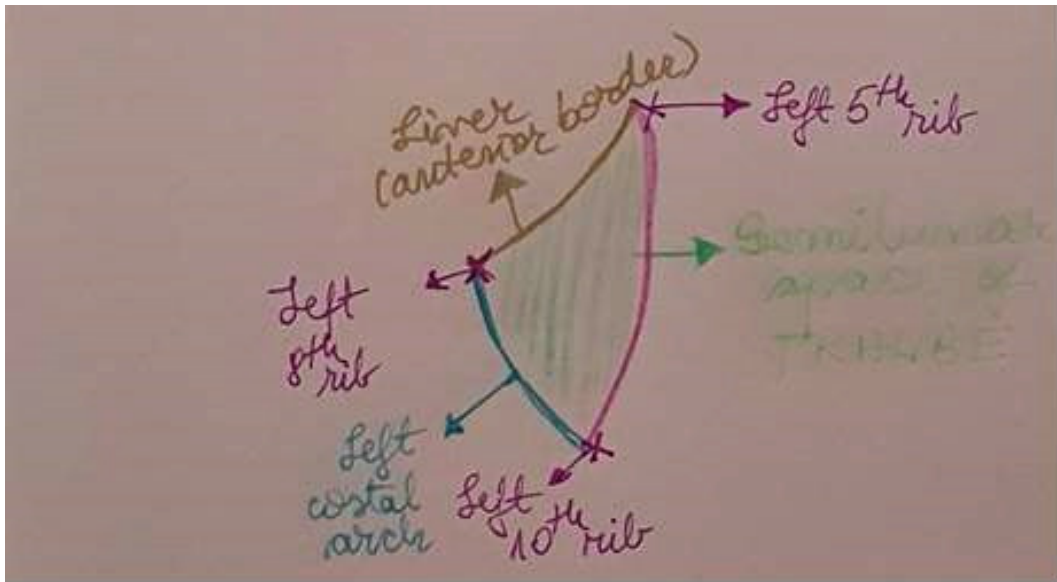 Liver
(anterior border)
Left 5th
rib
Semilunar
space of
TRAUBE
Left
8th
rib
Left
costal
arch
Left
10th rib